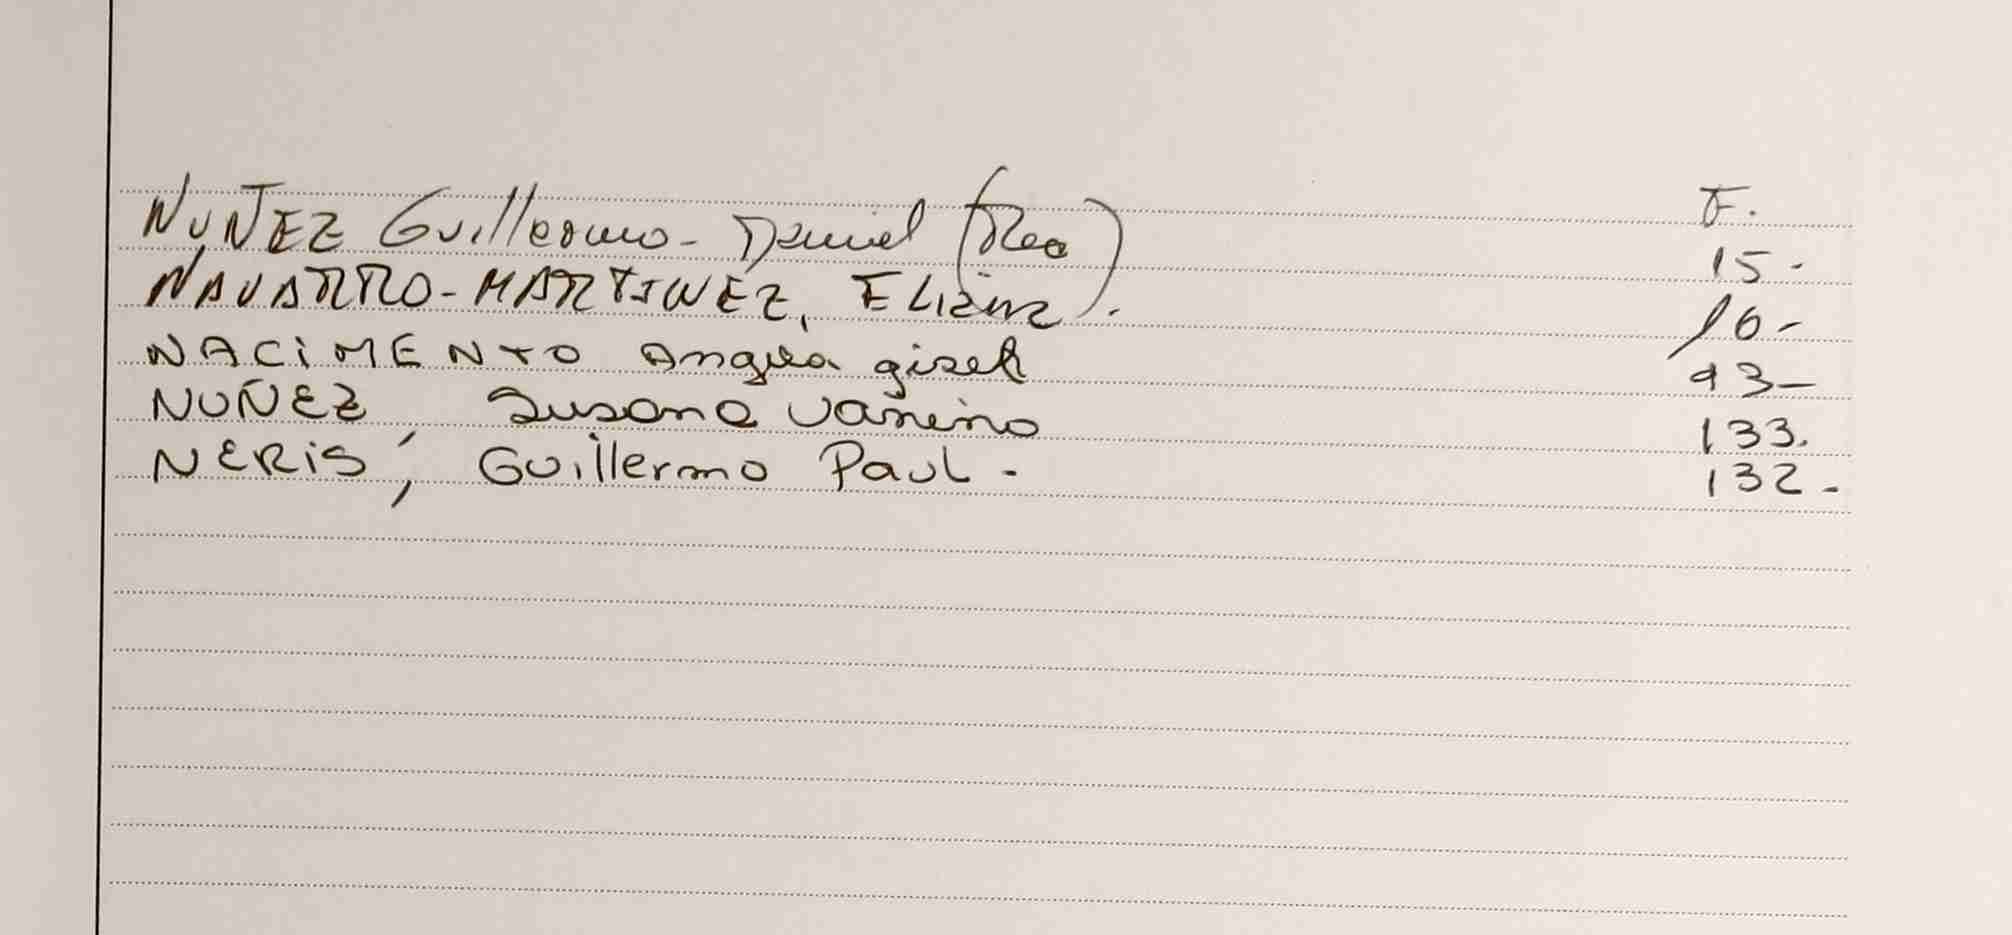 F.
NUÑEZ Guillermo - Daniel (Reo) 15 -
NAVARRO - MARTINEZ, Eliana. 16 -
NACIMENTO Angela gisel 93 -
NUÑEZ, Susana Vanina 133.
NERIS, Guillermo Paul - 132 -